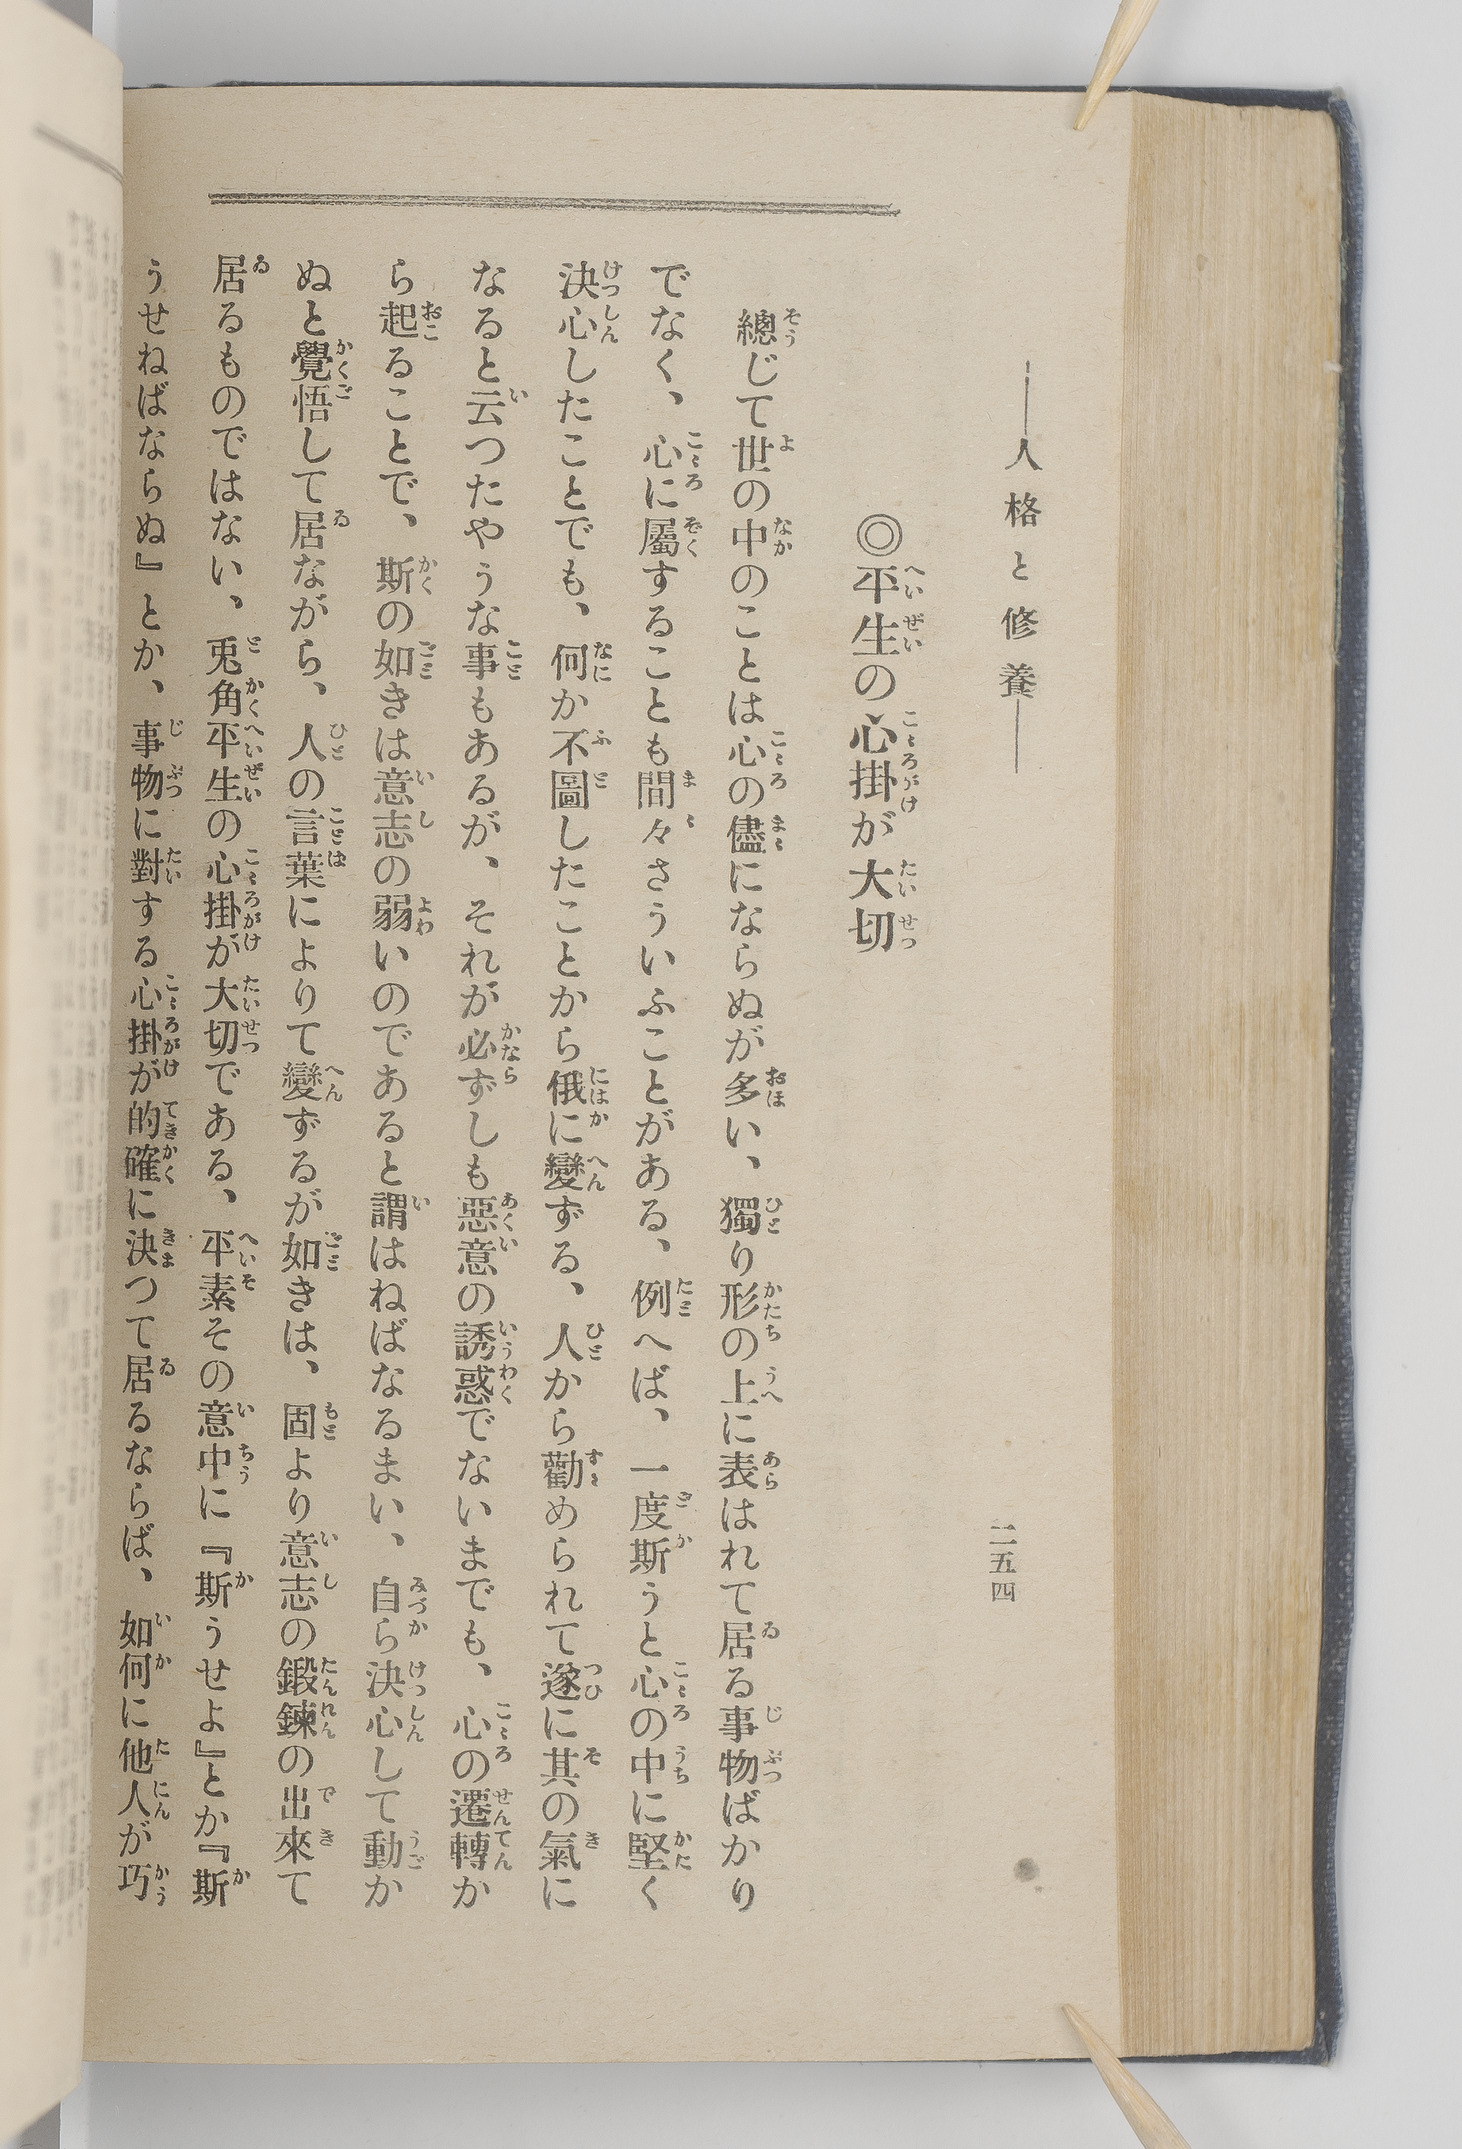 ――人格と修養――
二五四
◎平生の心掛が大切
總じて世の中のことは心の儘にならぬが多い、獨り形の上に表はれて居る事物ばかり
でなく、心に屬することも間々さういふことがある、例へば、一度斯うと心の中に堅く
決心したことでも、何か不圖したことから俄に變ずる、人から勸められて遂に其の氣に
なると云つたやうな事もあるが、それが必ずしも惡意の誘惑でないまでも、心の遷轉か
ら起ることで、斯の如きは意志の弱いのであると謂はねばなるまい、自ら決心して動か
ぬと覺悟して居ながら、人の言葉によりて變ずるが如きは、固より意志の鍛鍊の出來て
居るものではない、兎角平生の心掛が大切である、平素その意中に『斯うせよ』とか『斯
うせねばならぬ』とか、事物に對する心掛が的確に決つて居るならば、如何に他人が巧